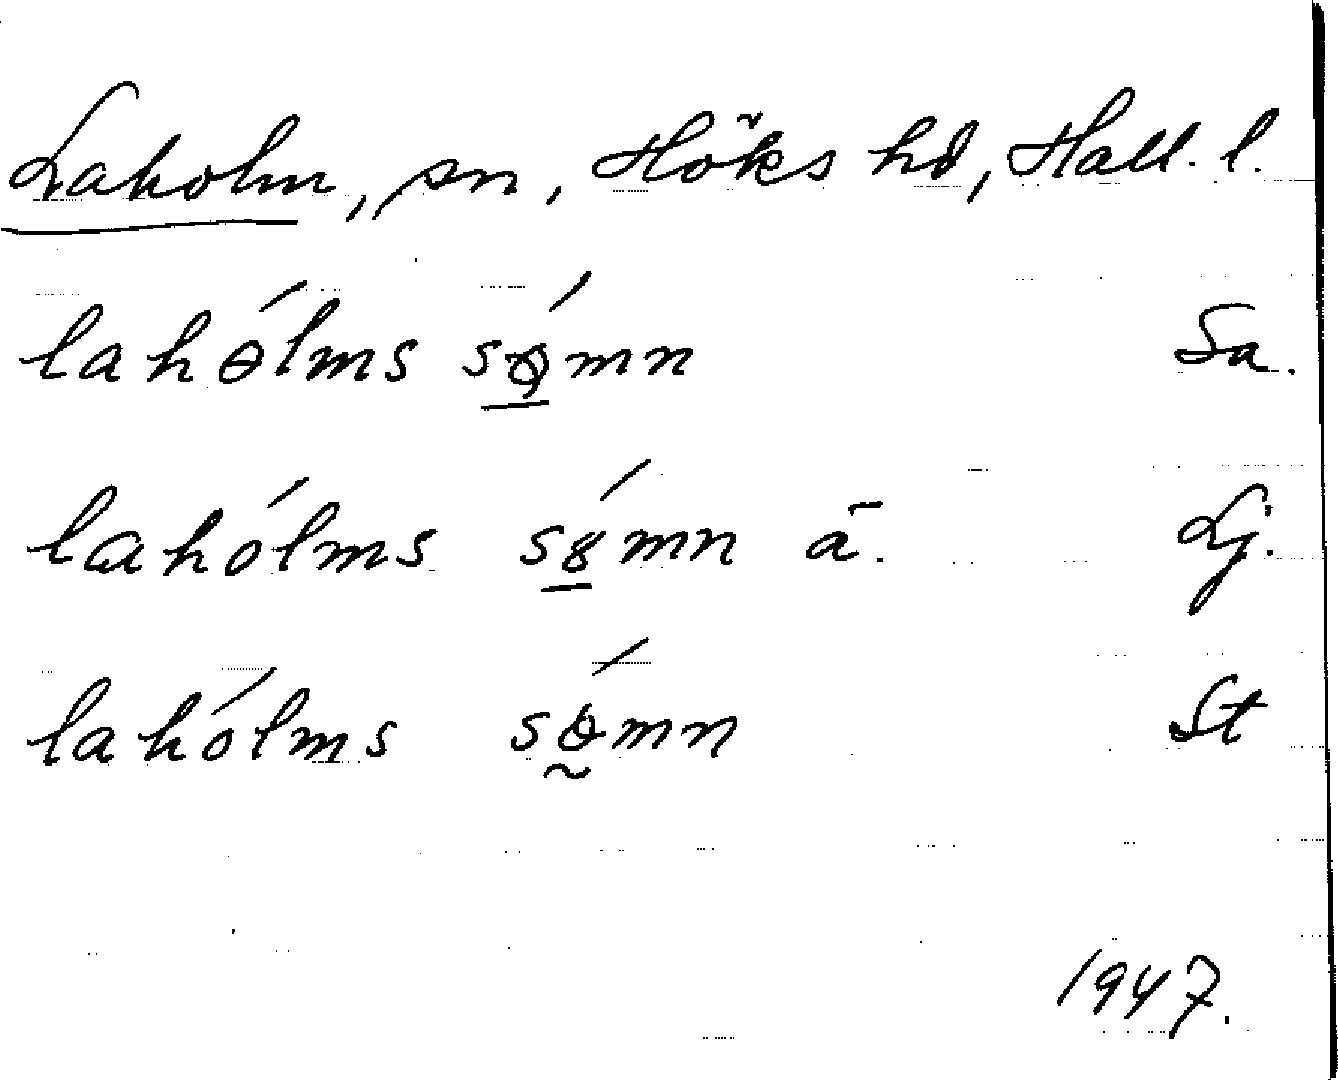 Laholm, sn, Höks hd, Hall. l.
lahɵ́lms sǿmn Sa.
lahólms s8́mn ā. Lj.
lahólms sɵ̰́mn St
1947.